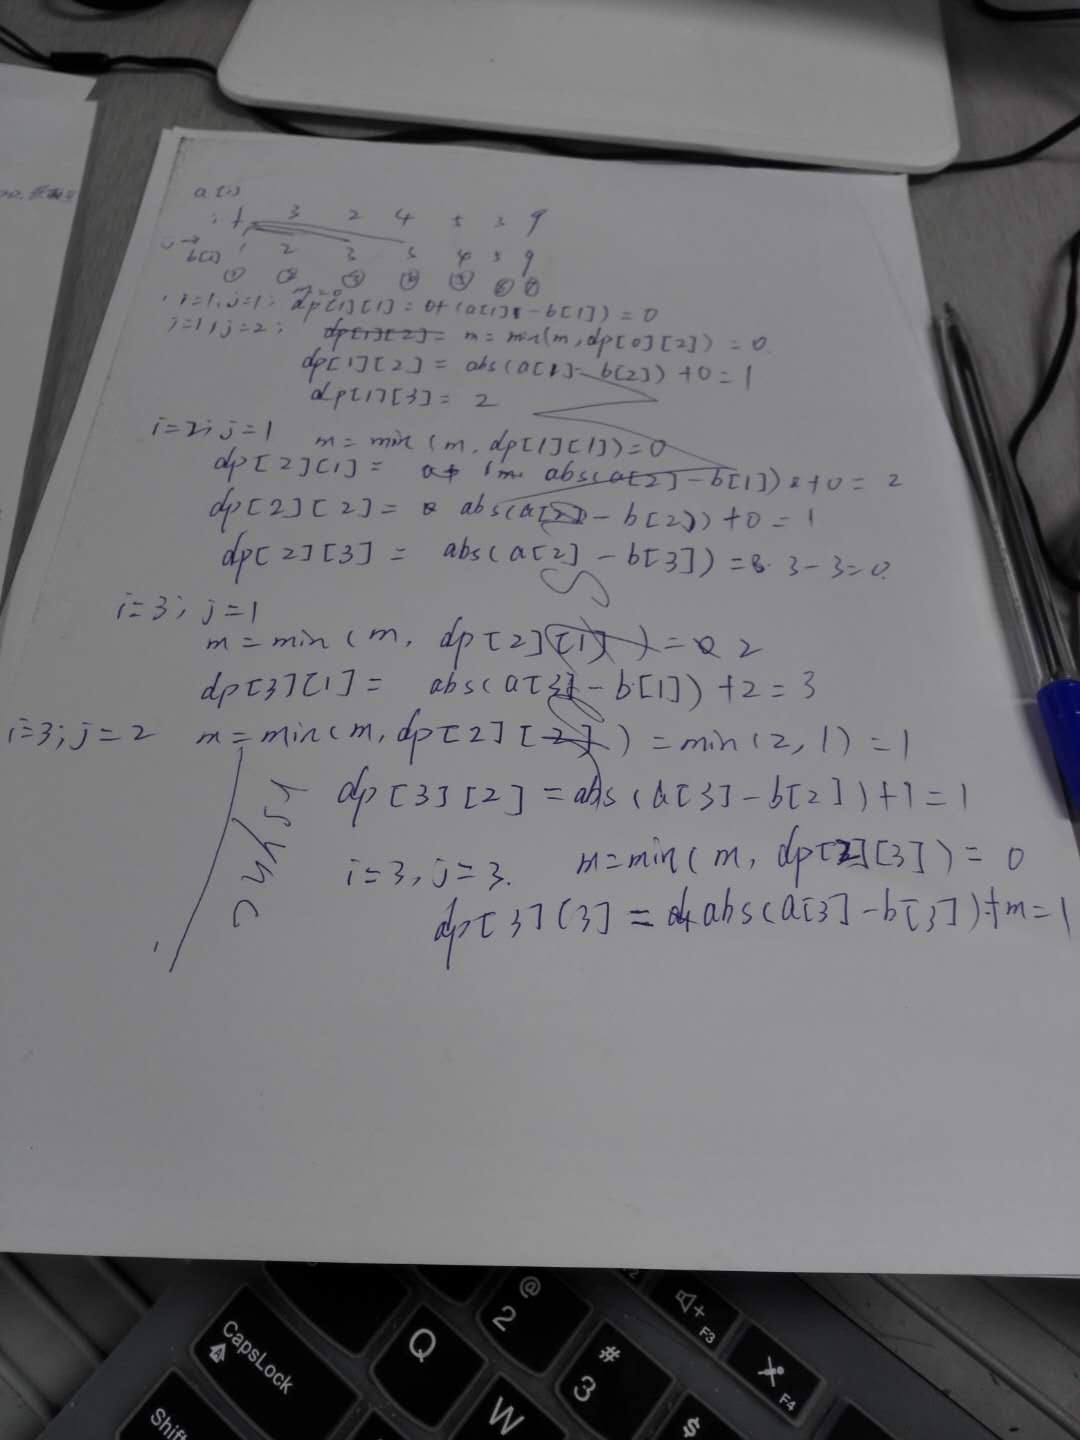 a(i)
i 1 3 2 4 5 3 9
j → b(i) 1 2 3 3 4 5 9
① ② ③ ④ ⑤ ⑥ ⑦
i=1,j=1: m=0 dp[1][1] = 0+(a[1] - b[1]) = 0
i=1,j=2; dp[1][2]= m = min(m,dp[0][2]) = 0.
dp[1][2] = abs(a[1]- b[2]) +0=1
dp[1][3] = 2
i=2;j=1 m= min (m, dp[1][1])=0
dp[2][1] = abs(a[2]-b[1]) +0 = 2
dp[2][2] = abs(a[2] - b[2]) +0 = 1
dp[2][3] = abs(a[2] - b[3]) = 3-3=0.
i=3; j=1
m=min(m, dp[2][1]) = 2
dp[3][1] = abs(a[3] - b[1]) +2=3
i=3;j=2 m=min(m,dp[2][2]) =min(2,1) =1
dp[3][2] =abs(a[3]-b[2])+1=1
i=3,j=3. m=min(m, dp[2][3]) = 0
dp[3][3] = abs(a[3]-b[3])+m=1
CapsLock
Q
@
2
#
3
W
$
Shift
F3
F4